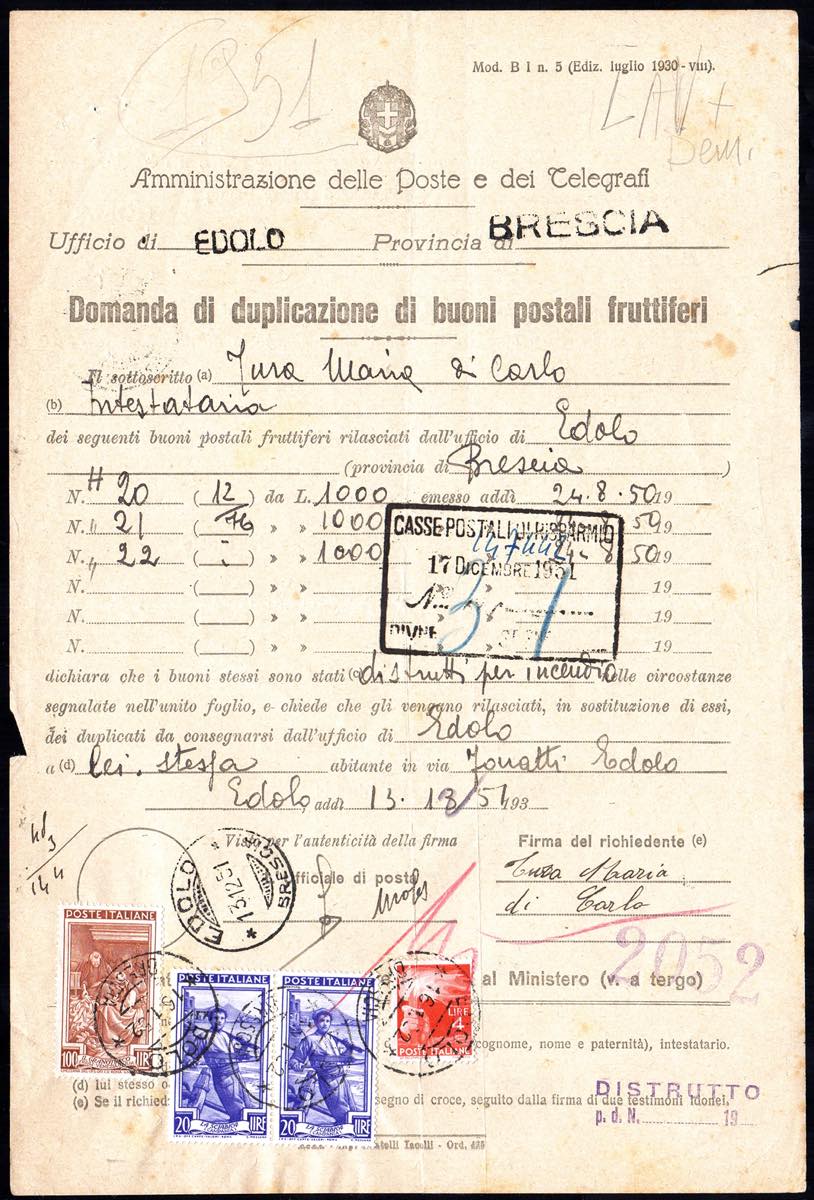 1951
Mod. B I n. 5 (Ediz. luglio 1930 - VIII).
LAV +
Dem.
Amministrazione delle Poste e dei Telegrafi
Ufficio di EDOLO Provincia di BRESCIA
Domanda di duplicazione di buoni postali fruttiferi
Il sottoscritto (a) Tura Maria di Carlo
(b) Intestataria
dei seguenti buoni postali fruttiferi rilasciati dall'ufficio di Edolo
(provincia di Brescia )
N. 20 ( 12 ) da L. 1000 emesso addì 24.8.50 19
N. " 21 ( ) » » 1000 50 19
N. " 22 ( ) » » 1000 8 50 19
N. ( ) » » » 19
N. ( ) » » 19
N. ( ) » » 19
CASSE POSTALI DI RISPARMIO
17 DICEMBRE 1951
N.
DIVNE
dichiara che i buoni stessi sono stati (c) distrutti per incendio nelle circostanze
segnalate nell'unito foglio, e chiede che gli vengano rilasciati, in sostituzione di essi,
dei duplicati da consegnarsi dall'ufficio di Edolo
a (d) lei stessa abitante in via Edolo
Edolo, addì 13.12 51 193
Visto per l'autenticità della firma
Ufficiale di posta
Firma del richiedente (e)
Tura Maria
di Carlo
144
EDOLO * 13.12.51 * BRESCIA
al Ministero (v. a tergo)
2052
POSTE ITALIANE
100 LIRE
POSTE ITALIANE
20 LIRE
LA SCIABICA
POSTE ITALIANE
20 LIRE
LA SCIABICA
LIRE 4
POSTE ITALIANE
cognome, nome e paternità), intestatario.
(d) lui stesso o
(e) Se il richied segno di croce, seguito dalla firma di due testimoni idonei.
DISTRUTTO
p. d. N. 19